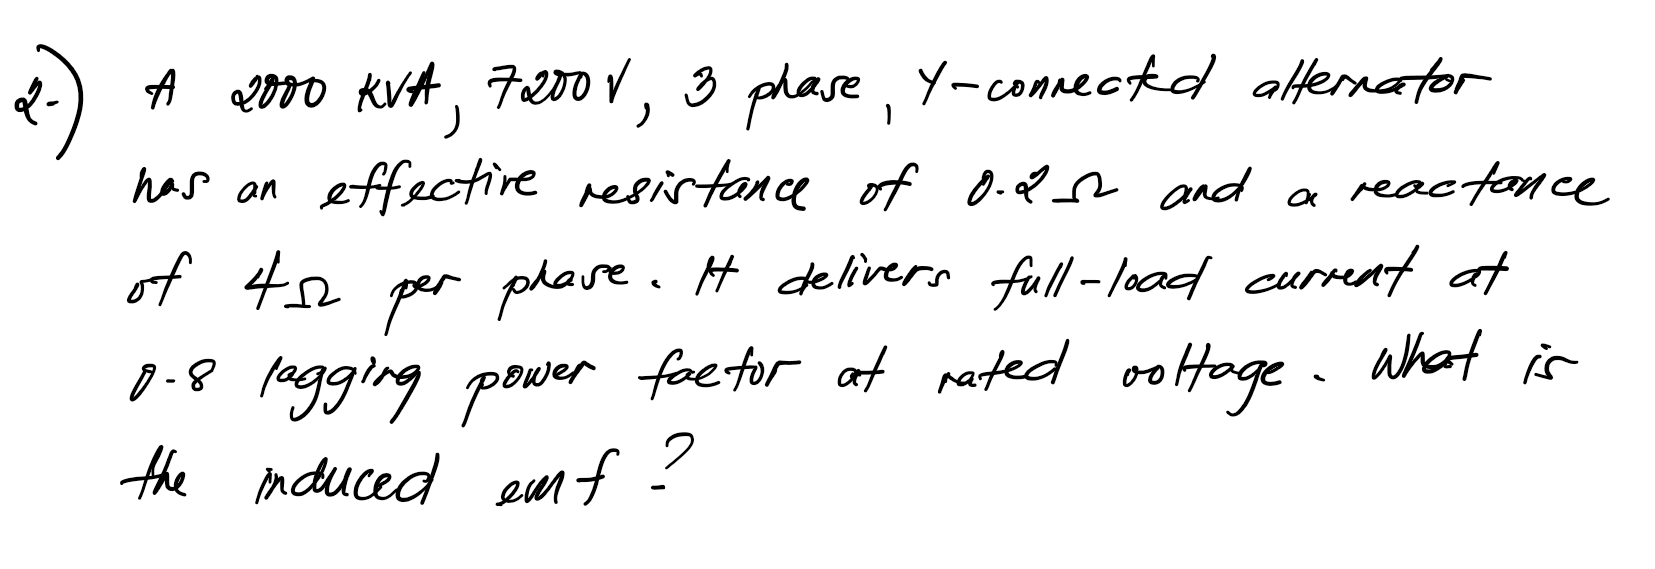 2.) A 2000 KVA, 7200 V, 3 phase, Y-connected alternator
has an effective resistance of 0.2 Ω and a reactance
of 4 Ω per phase. It delivers full-load current at
0.8 lagging power factor at rated voltage. What is
the induced emf?